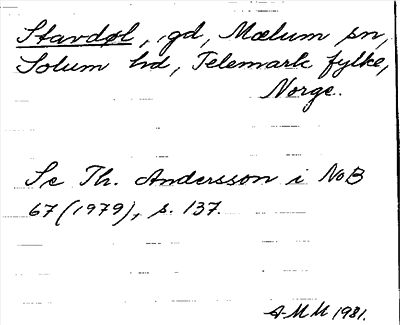 Stavdøl, gd, Mælum sn,
Solum hd, Telemark fylke,
Norge.
Se Th. Andersson i NoB
67 (1979), s. 137.
AMM 1981.